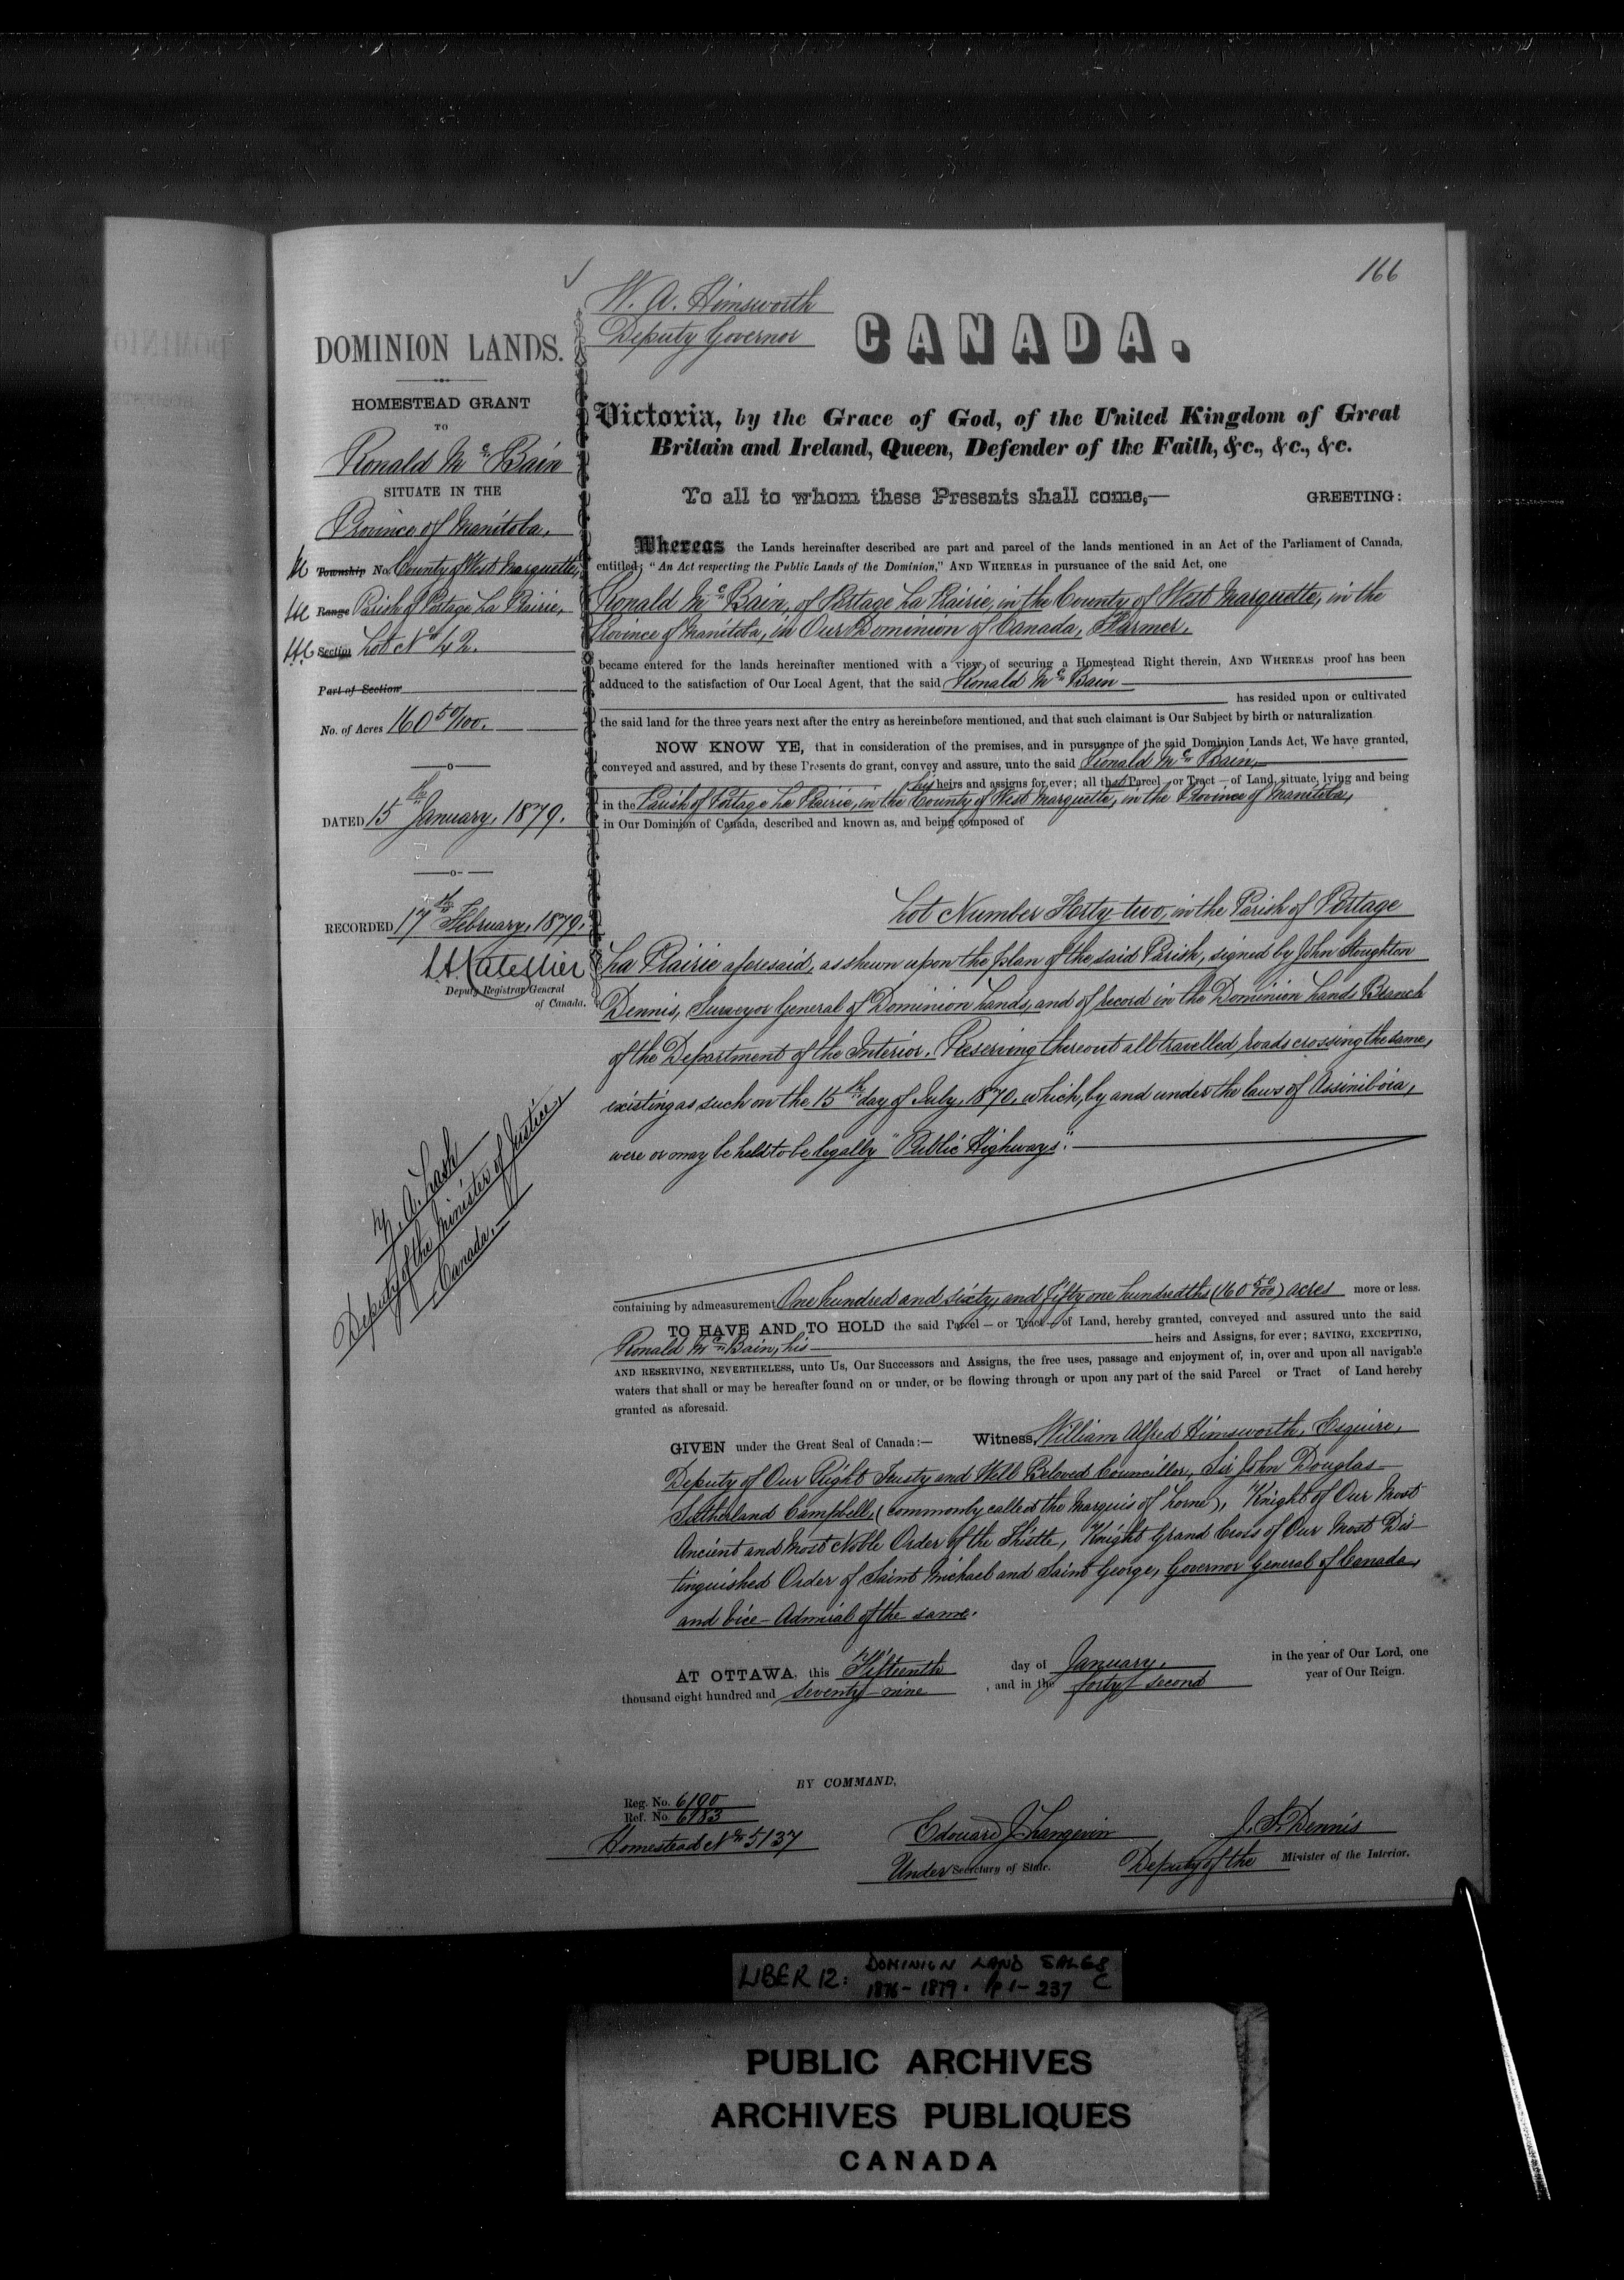 166
W. A. Himsworth
Deputy Governor
CANADA.
DOMINION LANDS.
HOMESTEAD GRANT
TO
Ronald Mc Bain
SITUATE IN THE
Province of Manitoba.
Township No. County of West Marquette,
Range Parish of Portage La Prairie,
Section Lot No 42.
Part of Section
No. of Acres 160 50/100.
DATED 15th January, 1879.
RECORDED 17th February, 1879.
Deputy Registrar General
of Canada.
Z. A. Lash
Deputy of the Minister of Justice,
Canada.
Victoria, by the Grace of God, of the United Kingdom of Great
Britain and Ireland, Queen, Defender of the Faith, &c., &c., &c.
To all to whom these Presents shall come,— GREETING:
Whereas the Lands hereinafter described are part and parcel of the lands mentioned in an Act of the Parliament of Canada,
entitled; "An Act respecting the Public Lands of the Dominion," AND WHEREAS in pursuance of the said Act, one
Ronald Mc Bain, of Portage La Prairie, in the County of West Marquette, in the
Province of Manitoba, in Our Dominion of Canada, Farmer.
became entered for the lands hereinafter mentioned with a view of securing a Homestead Right therein, AND WHEREAS proof has been
adduced to the satisfaction of Our Local Agent, that the said Ronald Mc Bain
has resided upon or cultivated
the said land for the three years next after the entry as hereinbefore mentioned, and that such claimant is Our Subject by birth or naturalization
NOW KNOW YE, that in consideration of the premises, and in pursuance of the said Dominion Lands Act, We have granted,
conveyed and assured, and by these Presents do grant, convey and assure, unto the said Ronald Mc Bain,
his heirs and assigns for ever; all that Parcel – or Tract – of Land, situate, lying and being
in the Parish of Portage La Prairie, in the County of West Marquette, in the Province of Manitoba,
in Our Dominion of Canada, described and known as, and being composed of
Lot Number Forty-two, in the Parish of Portage
La Prairie aforesaid, as shewn upon the plan of the said Parish, signed by John Stoughton
Dennis, Surveyor General of Dominion Lands, and of record in the Dominion Lands Branch
of the Department of the Interior. Reserving thereout all travelled roads crossing the same,
existing as such on the 15th day of July, 1870, which, by and under the laws of Assiniboia,
were or may be held to be legally "Public Highways".
containing by admeasurement One hundred and sixty, and fifty one hundredths (160 50/100) acres more or less.
TO HAVE AND TO HOLD the said Parcel – or Tract – of Land, hereby granted, conveyed and assured unto the said
Ronald Mc Bain, his heirs and Assigns, for ever; SAVING, EXCEPTING,
AND RESERVING, NEVERTHELESS, unto Us, Our Successors and Assigns, the free uses, passage and enjoyment of, in, over and upon all navigable
waters that shall or may be hereafter found on or under, or be flowing through or upon any part of the said Parcel or Tract of Land hereby
granted as aforesaid.
GIVEN under the Great Seal of Canada:— Witness, William Alfred Himsworth, Esquire,
Deputy of Our Right Trusty and Well Beloved Councillor, Sir John Douglas
Sutherland Campbell, (commonly called the Marquis of Lorne), Knight of Our Most
Ancient and Most Noble Order of the Thistle, Knight Grand Cross of Our Most Dis-
tinguished Order of Saint Michael and Saint George, Governor General of Canada,
and Vice-Admiral of the same.
AT OTTAWA, this Fifteenth day of January, in the year of Our Lord, one
thousand eight hundred and seventy-nine, and in the forty second year of Our Reign.
BY COMMAND,
Reg. No. 6190
Ref. No. 6783
Homestead No 5137
Edouard J. Langevin
Under Secretary of State.
J. S. Dennis
Deputy of the Minister of the Interior.
LIBER 12: DOMINION LAND SALES C
1876-1879. pp 1-237
PUBLIC ARCHIVES
ARCHIVES PUBLIQUES
CANADA